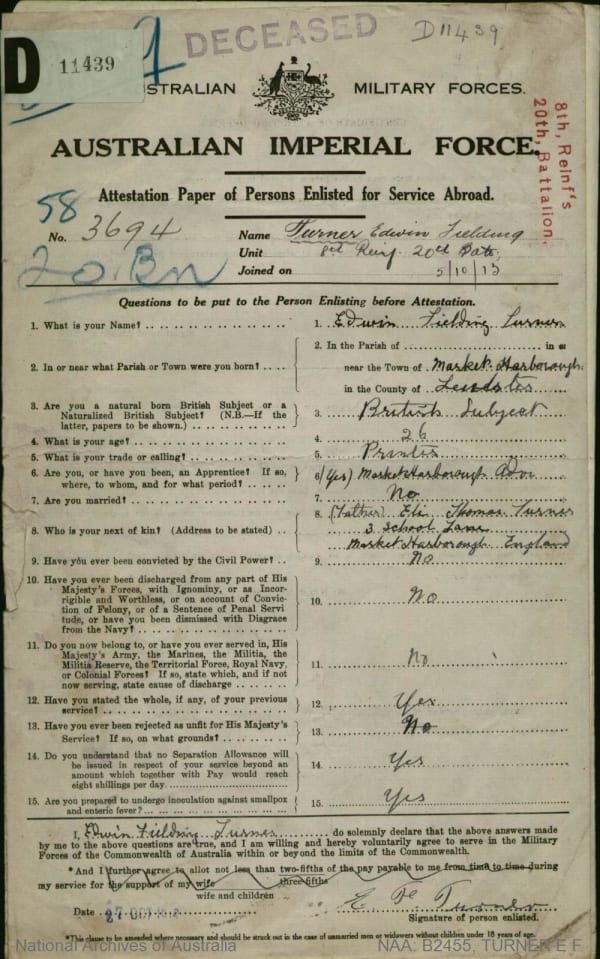 DECEASED
D11439
D 11439
AUSTRALIAN MILITARY FORCES.
AUSTRALIAN IMPERIAL FORCE.
8th, Reinf's
20th, Battalion.
Attestation Paper of Persons Enlisted for Service Abroad.
58
No. 3694
20. Bn
Name Turner Edwin Fielding
Unit 8th Reinf. 20th Batt.
Joined on 5/10/15
Questions to be put to the Person Enlisting before Attestation.
1. What is your Name? 1. Edwin Fielding Turner
2. In or near what Parish or Town were you born? 2. In the Parish of in or
near the Town of Market Harborough
in the County of
3. Are you a natural born British Subject or a
Naturalized British Subject? (N.B.—If the
latter, papers to be shown.) 3. British Subject
4. What is your age? 4. 26
5. What is your trade or calling? 5. Printer
6. Are you, or have you been, an Apprentice? If so,
where, to whom, and for what period? 6. (Yes) Market Harborough Adv
7. Are you married? 7. No
8. Who is your next of kin? (Address to be stated) 8. (Father) Eli Thomas Turner
3 School Lane
Market Harborough England
9. Have you ever been convicted by the Civil Power? 9. No
10. Have you ever been discharged from any part of His
Majesty's Forces, with Ignominy, or as Incor-
rigible and Worthless, or on account of Convic-
tion of Felony, or of a Sentence of Penal Servi
tude, or have you been dismissed with Disgrace
from the Navy? 10. No
11. Do you now belong to, or have you ever served in, His
Majesty's Army, the Marines, the Militia, the
Militia Reserve, the Territorial Force, Royal Navy,
or Colonial Forces? If so, state which, and if not
now serving, state cause of discharge 11. No
12. Have you stated the whole, if any, of your previous
service? 12. Yes
13. Have you ever been rejected as unfit for His Majesty's
Service? If so, on what grounds? 13. No
14. Do you understand that no Separation Allowance will
be issued in respect of your service beyond an
amount which together with Pay would reach
eight shillings per day. 14. Yes
15. Are you prepared to undergo inoculation against smallpox
and enteric fever? 15. Yes
I, Edwin Fielding Turner do solemnly declare that the above answers made
by me to the above questions are true, and I am willing and hereby voluntarily agree to serve in the Military
Forces of the Commonwealth of Australia within or beyond the limits of the Commonwealth.
*And I further agree to allot not less than two-fifths of the pay payable to me from time to time during
three-fifths
my service for the support of my wife
wife and children
Date 27 OCT E F Turner
Signature of person enlisted.
*This clause to be amended where necessary and should be struck out in the case of unmarried men or widowers without children under 18 years of age.
National Archives of Australia NAA: B2455, TURNER E F